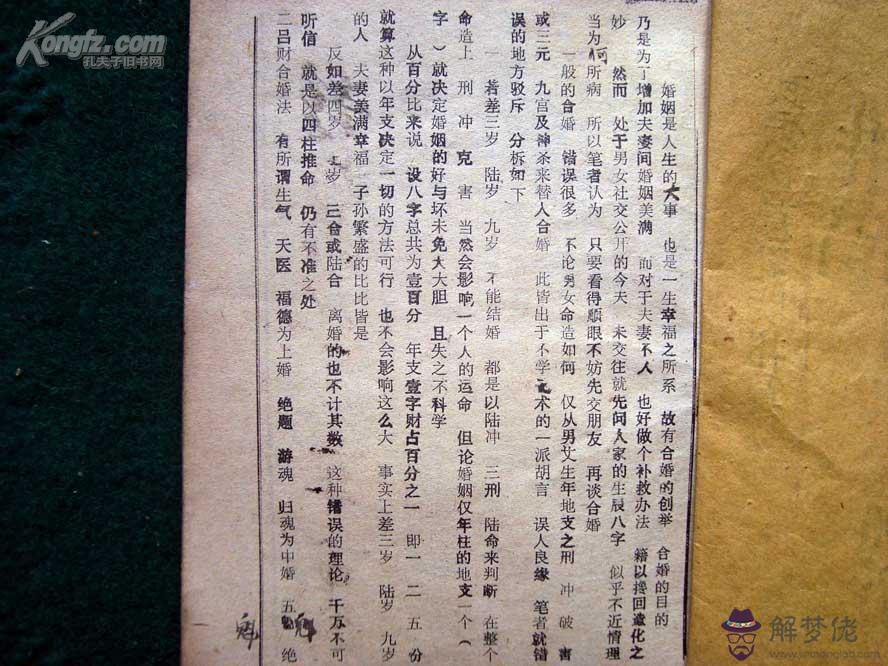 婚姻是人生的大事 也是一生幸福之所系 故有合婚的创举 合婚的目的
乃是为增加夫妻间婚姻美满 而对于夫妻不人 也好做个补救办法 籍以搀回造化之
妙 然而 处于男女社交公开的今天 未交往就先问人家的生辰八字 似乎不近情理
当为何所病 所以笔者认为 只要看得顺眼不妨先交朋友 再谈合婚
一般的合婚 错误很多 不论男女命造如何 仅从男女生年地支之刑 冲 破 害
或三元 九宫及神杀来替人合婚 此皆出于不学无术的一派胡言 误人良缘 笔者就错
误的地方驳斥 分析如下
一 若差三岁 陆岁 九岁 不能结婚 都是以陆冲 三刑 陆命来判断 在整个
命造上 刑 冲 克 害 当然会影响一个人的运命 但论婚姻仅年柱的地支一个(
字)就决定婚姻的好与坏未免大大胆 且失之不科学
从百分比来说 设八字总共为壹百分 年支壹字财占百分之一 即一 二 五 份
就算这种以年支决定一切的方法可行 也不会影响这么大 事实上差三岁 陆岁 九岁
的人 夫妻美满幸福 子孙繁盛的比比皆是
反如差四岁 岁 三合或陆合 离婚的也不计其数 这种错误的理论 千万不可
听信 就是以四柱推命 仍有不准之处
二吕财合婚法 有所谓生气 天医 福德为上婚 绝题 游魂 归魂为中婚 五鬼 绝
魁
Kongfz.com
孔夫子旧书网
解梦佬